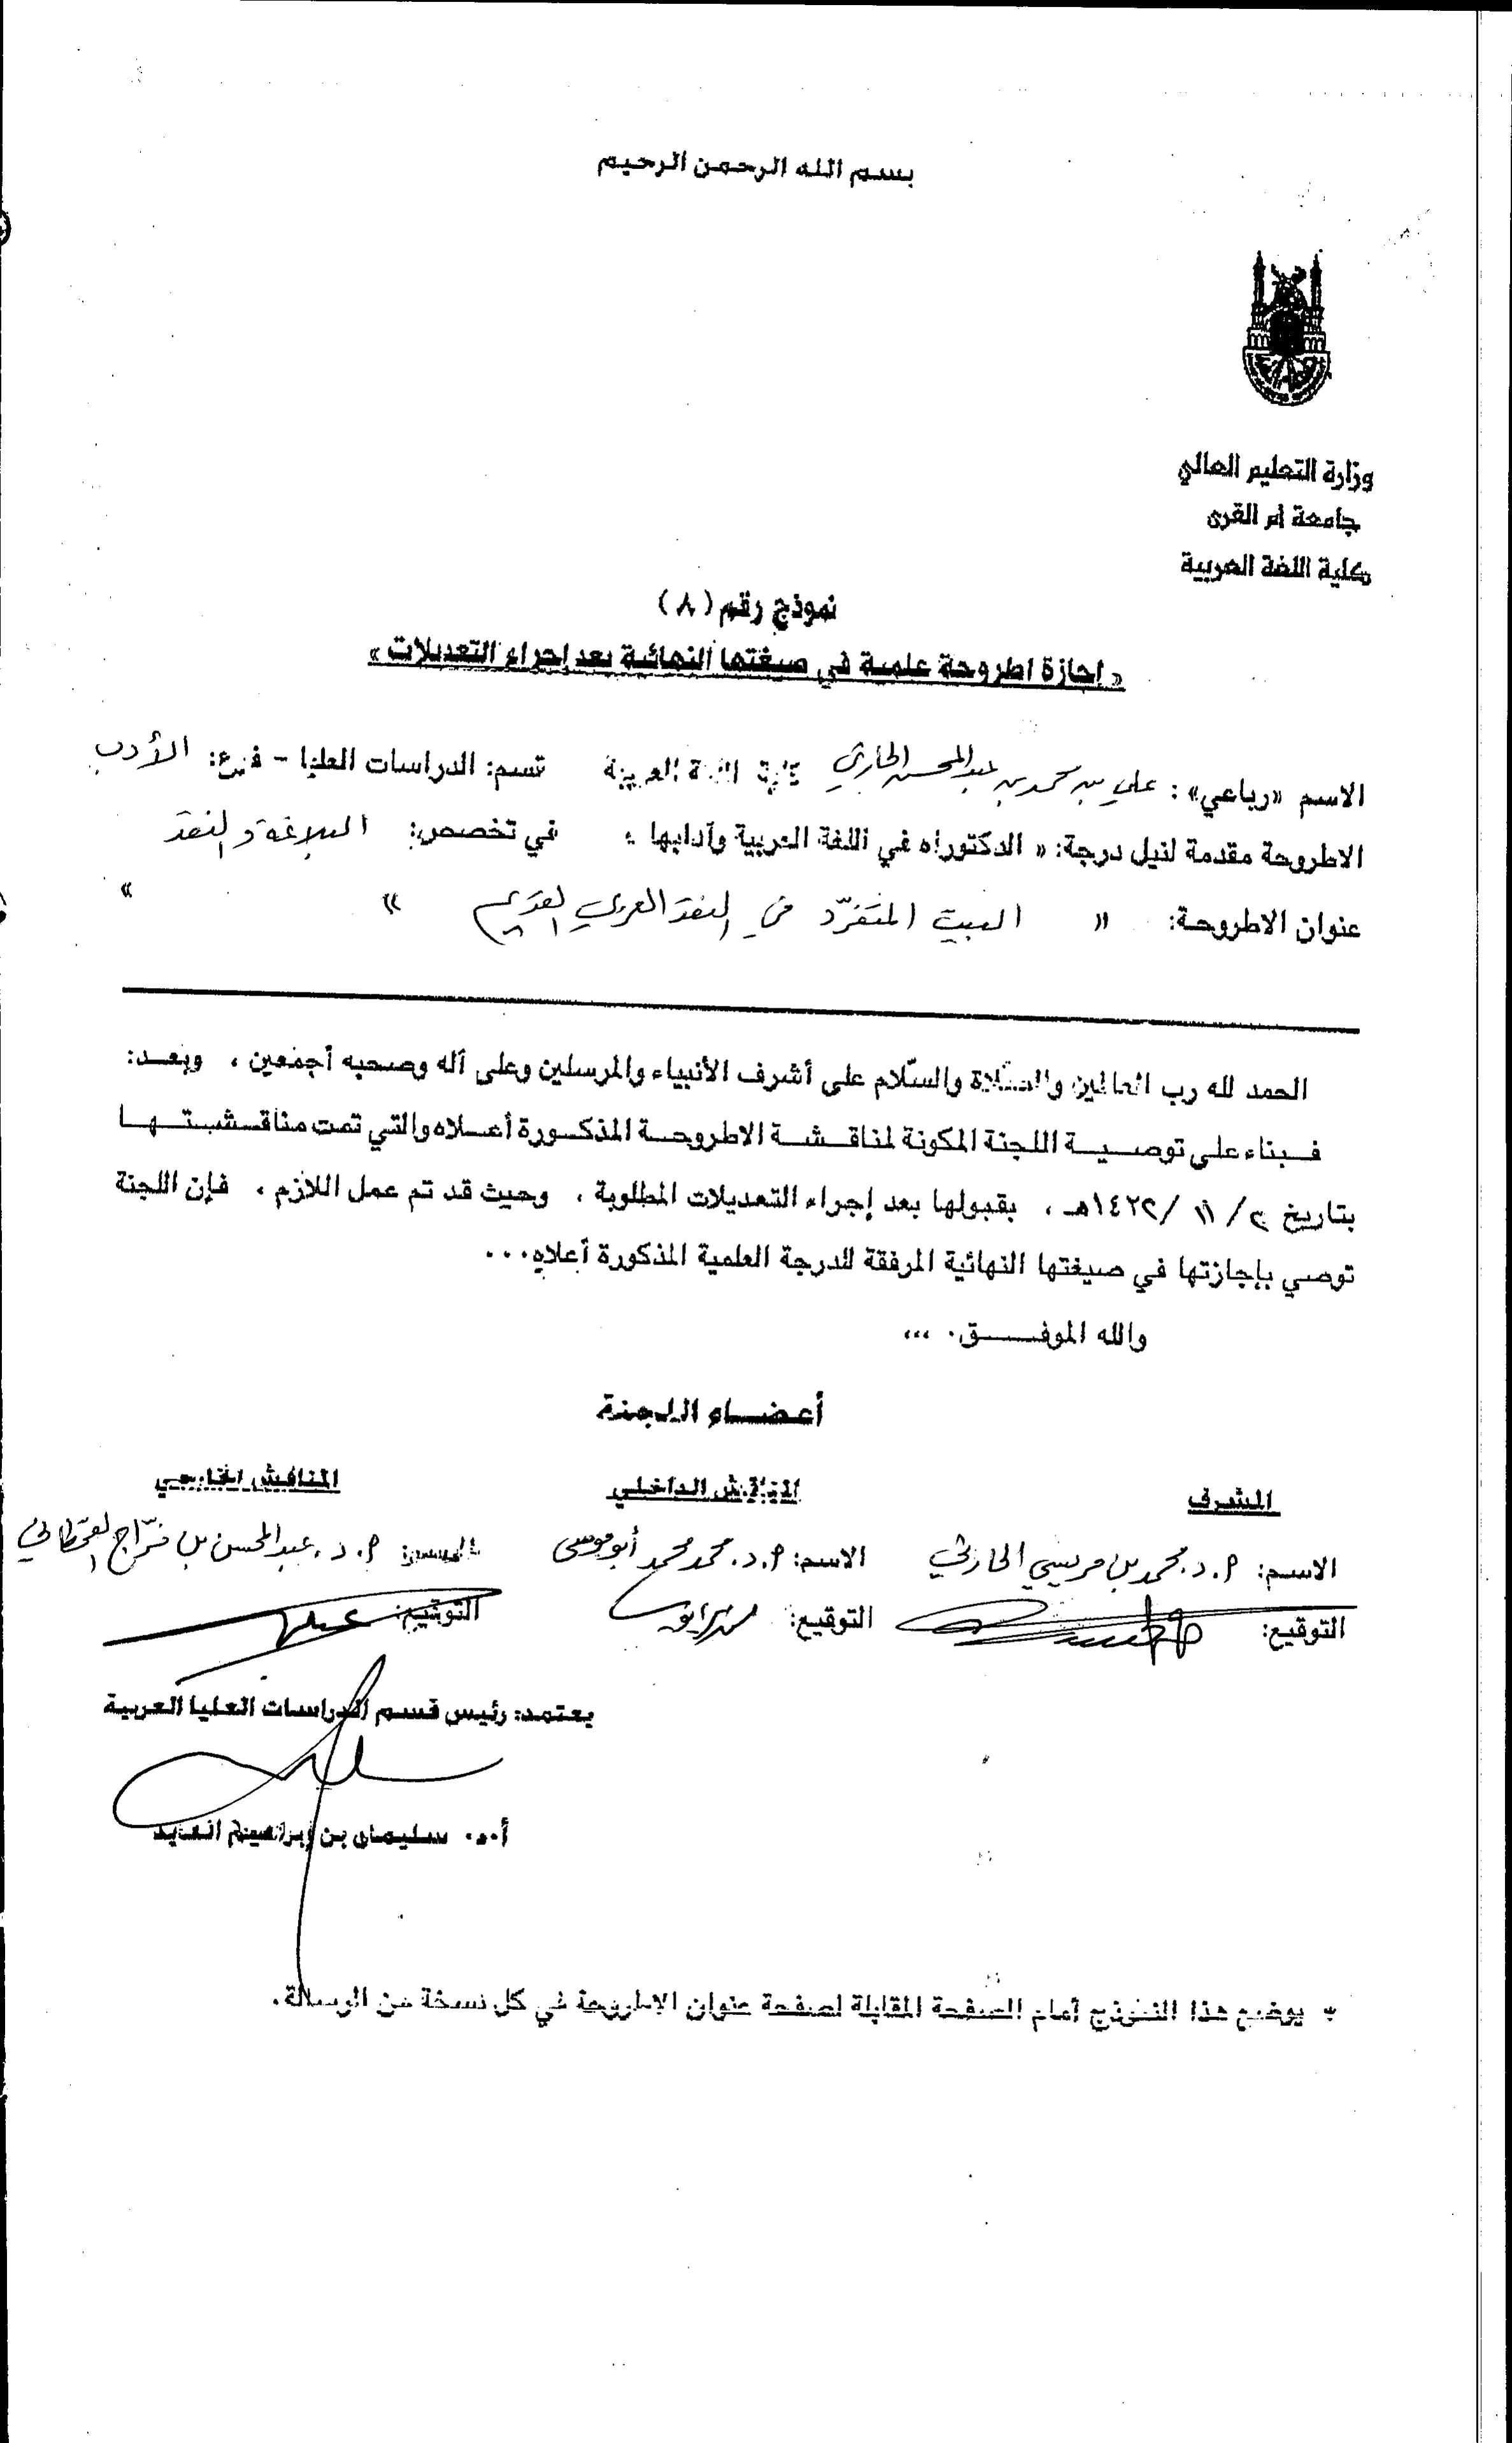 بسم الله الرحمن الرحيم
وزارة التعليم العالي
جامعة أم القرى
كلية اللغة العربية
نموذج رقم (٨)
« إجازة اطروحة علمية في صيغتها النهائية بعد إجراء التعديلات »
الاسم «رباعي» : علي بن محمد بن عبدالمحسن الحارثي كلية اللغة العربية قسم: الدراسات العليا - فرع: الأدب
الاطروحة مقدمة لنيل درجة: « الدكتوراه في اللغة العربية وآدابها » في تخصص: البلاغة والنقد
عنوان الاطروحة: « البيت المتفرّد في النقد العربي القديم » »
الحمد لله رب العالمين والصّلاة والسّلام على أشرف الأنبياء والمرسلين وعلى آله وصحبه أجمعين ، وبعد:
فبناء على توصية اللجنة المكونة لمناقشة الاطروحة المذكورة أعلاه والتي تمت مناقشتها
بتاريخ / ١١ / ١٤٢٢هـ ، بقبولها بعد إجراء التعديلات المطلوبة ، وحيث قد تم عمل اللازم ، فإن اللجنة
توصي بإجازتها في صيغتها النهائية المرفقة للدرجة العلمية المذكورة أعلاه...
والله الموفق. ...
أعضاء اللجنة
المشرف المناقش الداخلي المناقش الخارجي
الاسم: أ.د. محمد بن مريسي الحارثي الاسم: أ.د. محمد محمد أبو موسى الاسم: أ.د. عبدالمحسن بن فرّاج القحطاني
التوقيع: التوقيع: التوقيع:
يعتمد: رئيس قسم الدراسات العليا العربية
أ.د. سليمان بن إبراهيم العايد
* يوضع هذا النموذج أمام الصفحة المقابلة لصفحة عنوان الاطروحة في كل نسخة من الرسالة.